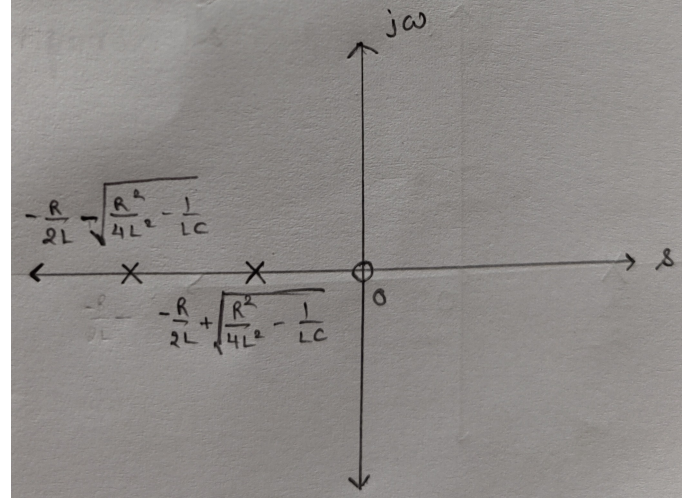 jω
-R/2L - √(R²/4L² - 1/LC)
s
0
-R/2L + √(R²/4L² - 1/LC)